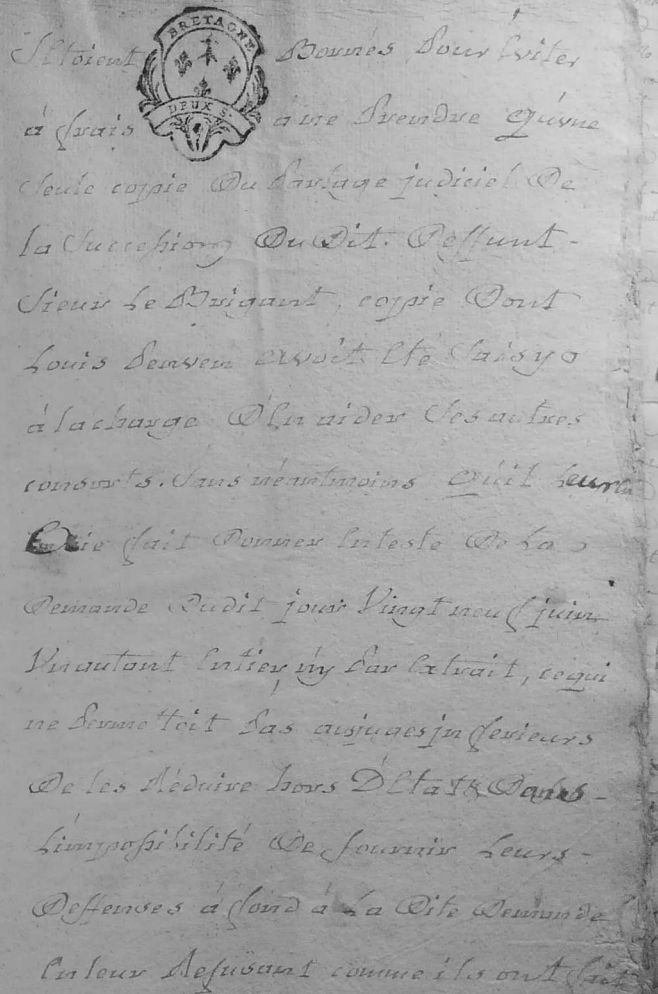 BRETAGNE
DEUX S.
S'Etoient Bornés Pour Eviter
à frais à ne Prendre Qu'une
Seule copie Du Partage judiciel De
la Succession Du Dit. Deffunt -
Sieur Le Brigant, copie Dont
Louis Penven avoit Eté Saisy
à la charge D'En aider Ses autres
consorts. Sans néantmoins Qu'il Leur
fait Donner En teste De La
Demande Dudit jour Vingt neuf juin
Un autant Entier ny Par Extrait, ce qui
ne Permettoit Pas aux juges jnferieurs
De les Réduire hors D'Etat & Dans -
L'impossibilité De fournir Leurs -
Deffenses à fond à La Dite Demande
En leur Refusant comme ils ont fait